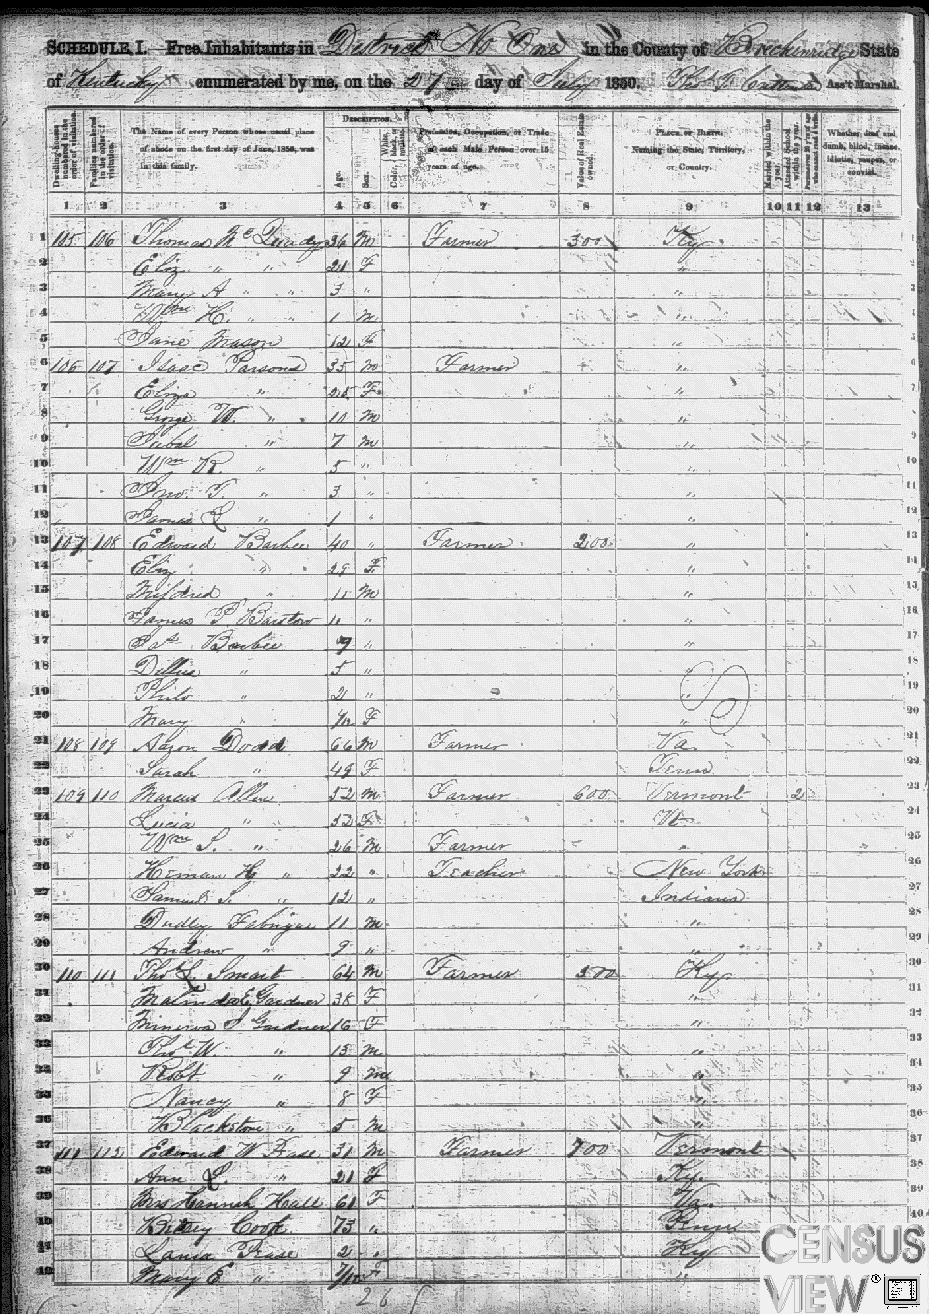 SCHEDULE I. Free Inhabitants in District No One in the County of Breckenridge State
of Kentucky enumerated by me, on the 27 day of July 1850. Ass't Marshal.
Dwelling-house numbered in the order of visitation.
Families numbered in the order of visitation.
The Name of every Person whose usual place of abode on the first day of June, 1850, was in this family.
DESCRIPTION.
Age.
Sex.
White, black, or mulatto.
Color
Profession, Occupation, or Trade of each Male Person over 15 years of age.
Value of Real Estate owned.
PLACE OF BIRTH. Naming the State, Territory, or Country.
Married within the year.
Attended School within the year.
Persons over 20 y'rs of age who cannot read & write.
Whether deaf and dumb, blind, insane, idiotic, pauper, or convict.
1 2 3 4 5 6 7 8 9 10 11 12 13
1 105 106 Thomas 36 M Farmer 300 Ky 1
2 Eliz " " 21 F " 2
3 Mary A " " 3 " " 3
4 Wm H. " " 1 M " 4
5 Jane Mason 12 F " 5
6 106 107 Isaac Parsons 35 M Farmer " 6
7 Eliza " 25 F " 7
8 George W. " 10 M " 8
9 " 7 M " 9
10 Wm R. " 5 " " 10
11 Jno. T. " 3 " " 11
12 James L " 1 " " 12
13 107 108 Edward Barbee 40 " Farmer 200 " 13
14 Eliz " 29 F " 14
15 " 11 M " 15
16 James P. Barstow 11 " " 16
17 Barbee 9 " " 17
18 " 5 " " 18
19 Philo " 2 " " 19
20 Mary " F " 20
21 108 109 Aaron Dodd 66 M Farmer Va 21
22 Sarah " 49 F Tenn 22
23 109 110 Marcus Allen 52 M Farmer 600 Vermont 2 23
24 Lucia " " 52 F Vt 24
25 Wm S. " 26 M Farmer " 25
26 Heman H " 22 " Teacher New York 26
27 Samuel S. " 12 " Indiana 27
28 Dudley 11 M " 28
29 Andrew " 9 " " 29
30 110 111 Thos L Smart 64 M Farmer 500 Ky 30
31 Malinda E Gardner 38 F " 31
32 Minerva S Gardner 16 F " 32
33 Thos W. " 13 M " 33
34 Robt " 9 M " 34
35 Nancy " 8 F " 35
36 Blackstone " 5 M " 36
37 111 112 Edward W Pease 31 M Farmer 700 Vermont 37
38 Ann L. " 21 F Ky. 38
39 Mrs Hannah Hall 61 F Va. 39
40 Cook 73 " Penn 40
41 Pease 2 " Ky
42 Mary E " F "
CENSUS
VIEW®